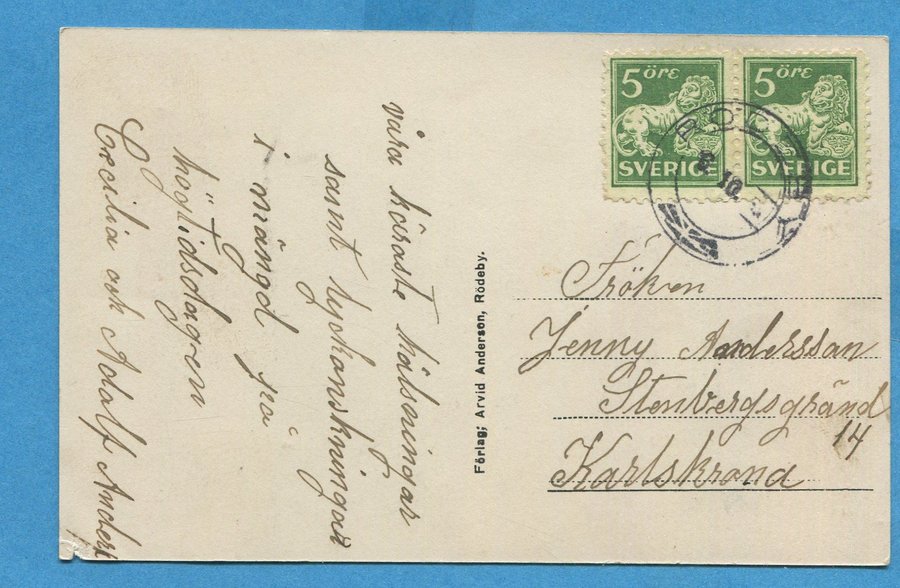 våra käraste hälsningar
samt lyckönskningar
i mängd på
högtidsdagen
Cecilia och Adolf Anders
Förlag; Arvid Anderson, Rödeby.
5 öre
SVERIGE
5 öre
SVERIGE
10
Fröken
Jenny Anderssan
Stenbergsgränd
14
Karlskrona